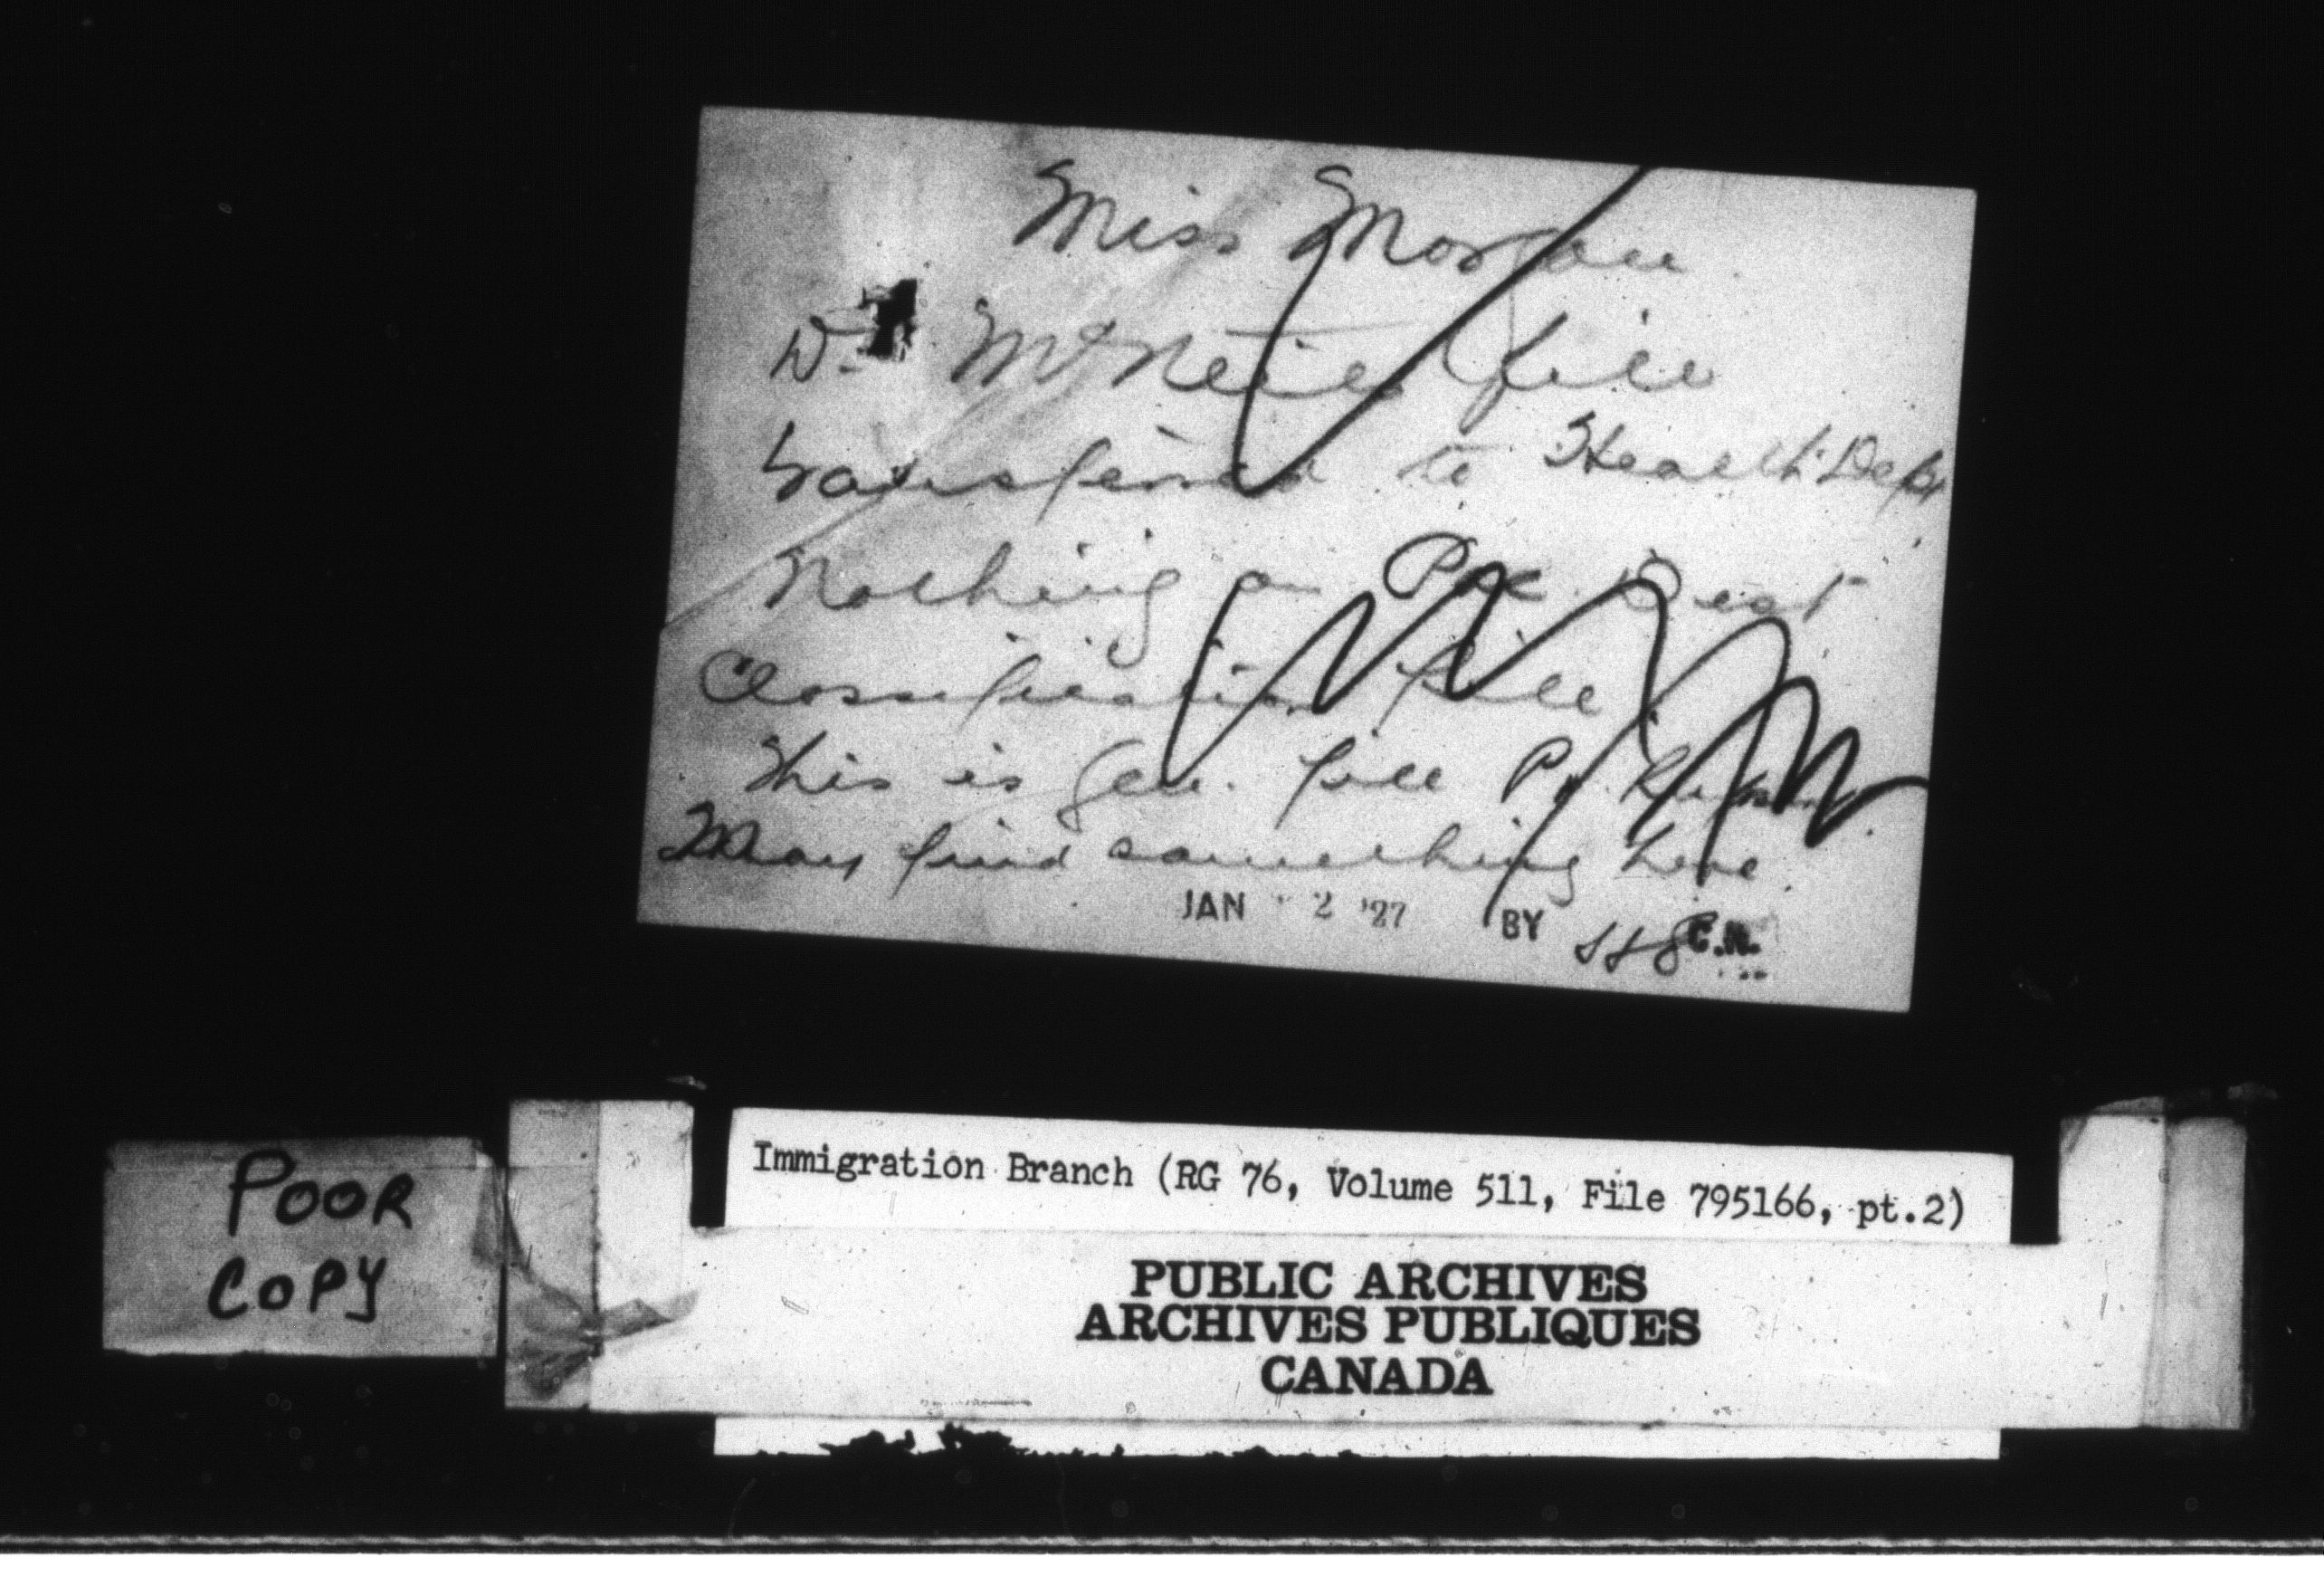 Miss Morgan.
Dr McNeil file
transferred to Health Dept
Nothing on Pac. Dest
Classification file
This is Gen. file Pr.
May find something here.
JAN 2 '27 BY C.R.
POOR
COPY
Immigration Branch (RG 76, Volume 511, File 795166, pt.2)
PUBLIC ARCHIVES
ARCHIVES PUBLIQUES
CANADA